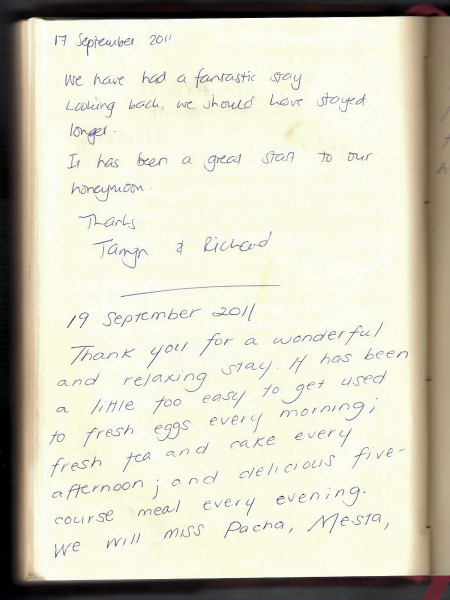 17 September 2011
We have had a fantastic stay
Looking back, we should have stayed
longer.
It has been a great start to our
honeymoon.
Thanks
Tamyn & Richard
19 September 2011
Thank you for a wonderful
and relaxing stay. It has been
a little too easy to get used
to fresh eggs every morning;
fresh tea and cake every
afternoon; and delicious five-
course meal every evening.
We will miss Pacha, Mesta,